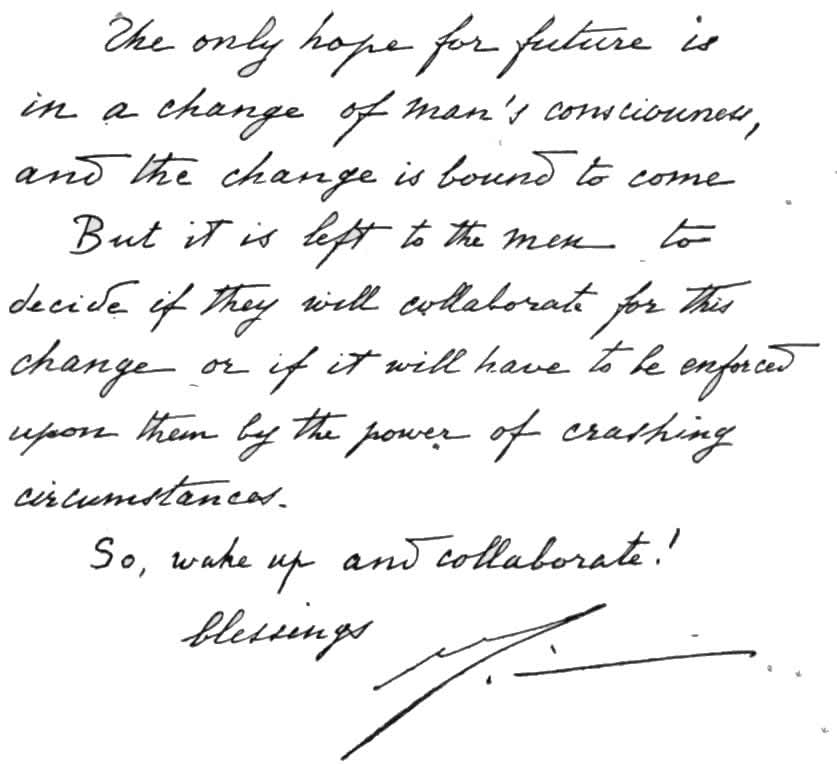 The only hope for future is
in a change of man's consciousness,
and the change is bound to come
But it is left to the men to
decide if they will collaborate for this
change or if it will have to be enforced
upon them by the power of crashing
circumstances.
So, wake up and collaborate!
blessings